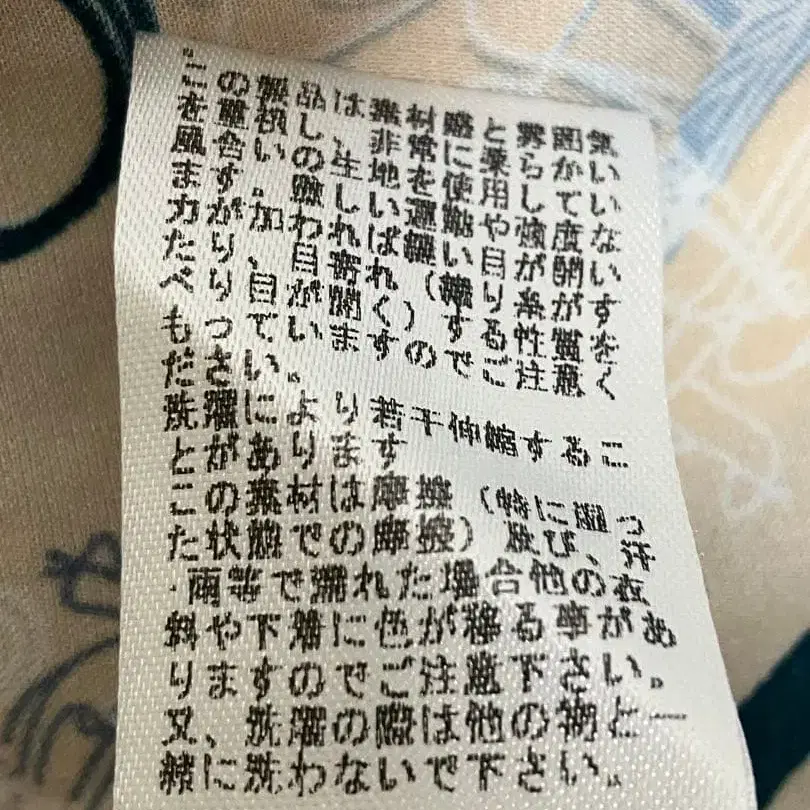 この製品は素材感と雰囲気
を重視し、非常に柔らかい
風合いの生地を使用してい
ます。激しい運動や強度な
力が加われば縫い目が開い
たり、目寄れ(縫り糸がす
べり目が開く)する性質を
もっていますのでご注意く
ださい。
洗濯により若干伸縮するこ
とがあります
この素材は摩擦(特に湿っ
た状態での摩擦)及び、汗
・雨等で濡れた場合他の衣
料や下着に色が移る事があ
りますのでご注意下さい。
又、洗濯の際は他の物と一
緒に洗わないで下さい。